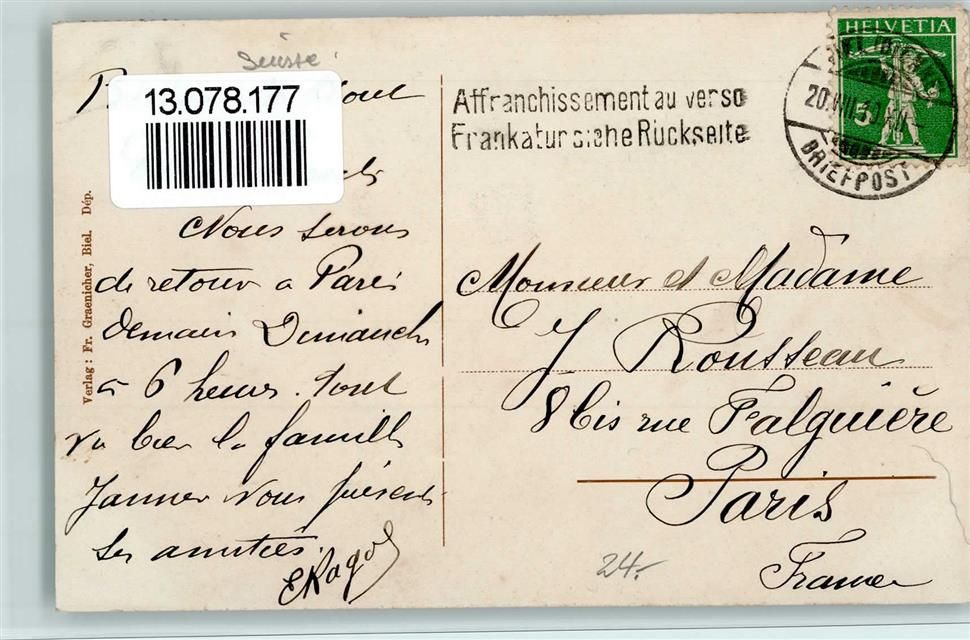 Suisse
13.078.177
Nous serons
de retour a Paris
demain Dimanche
a 6 heures. tout
va bien la famille
Janner vous présente
ses amitiés.
Verlag: Fr. Graenicher, Biel. Dép.
Affranchissement au verso
Frankatur siehe Rückseite
HELVETIA
5
BRIEFPOST
Monsieur et Madame
J Rousseau
8 bis rue Falguière
Paris
France
24.-